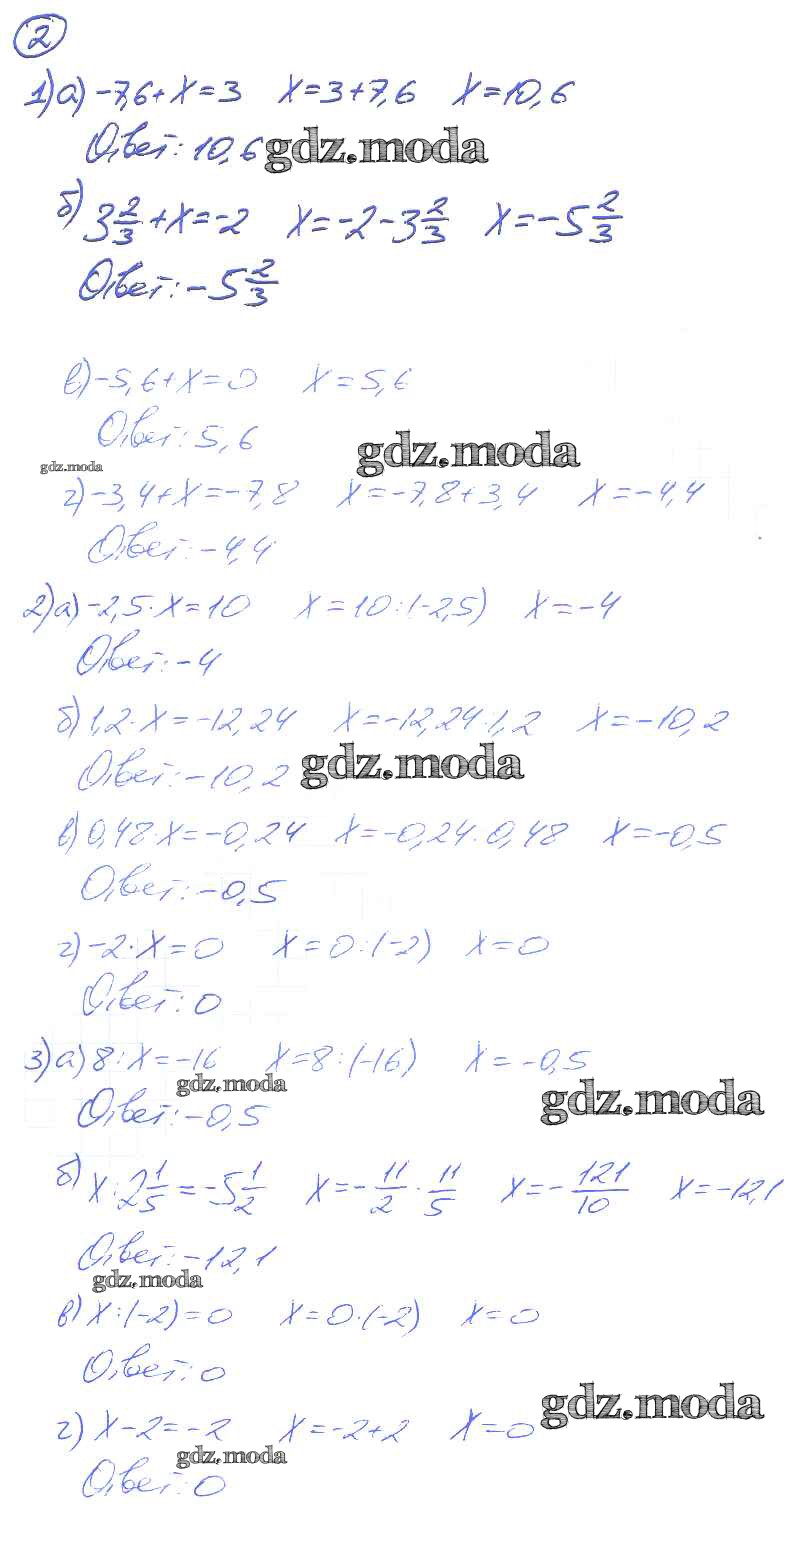 2
1) а) -7,6+X=3 X=3+7,6 X=10,6
Ответ: 10,6 gdz.moda
б) 3 2/3 +X=-2 X=-2-3 2/3 X=-5 2/3
Ответ: -5 2/3
в) -5,6+X=0 X=5,6
Ответ: 5,6
gdz.moda gdz.moda
г) -3,4+X=-7,8 X=-7,8+3,4 X=-4,4
Ответ: -4,4
2) а) -2,5·X=10 X=10:(-2,5) X=-4
Ответ: -4
б) 1,2·X=-12,24 X=-12,24·1,2 X=-10,2
Ответ: -10,2 gdz.moda
в) 0,48·X=-0,24 X=-0,24·0,48 X=-0,5
Ответ: -0,5
г) -2·X=0 X=0:(-2) X=0
Ответ: 0
3) а) 8:X=-16 X=8:(-16) X=-0,5
gdz.moda gdz.moda
Ответ: -0,5
б) X:2 1/5=-5 1/2 X=-11/2·11/5 X=-121/10 X=-12,1
Ответ: -12,1
gdz.moda
в) X:(-2)=0 X=0·(-2) X=0
Ответ: 0
gdz.moda
г) X-2=-2 X=-2+2 X=0
gdz.moda
Ответ: 0